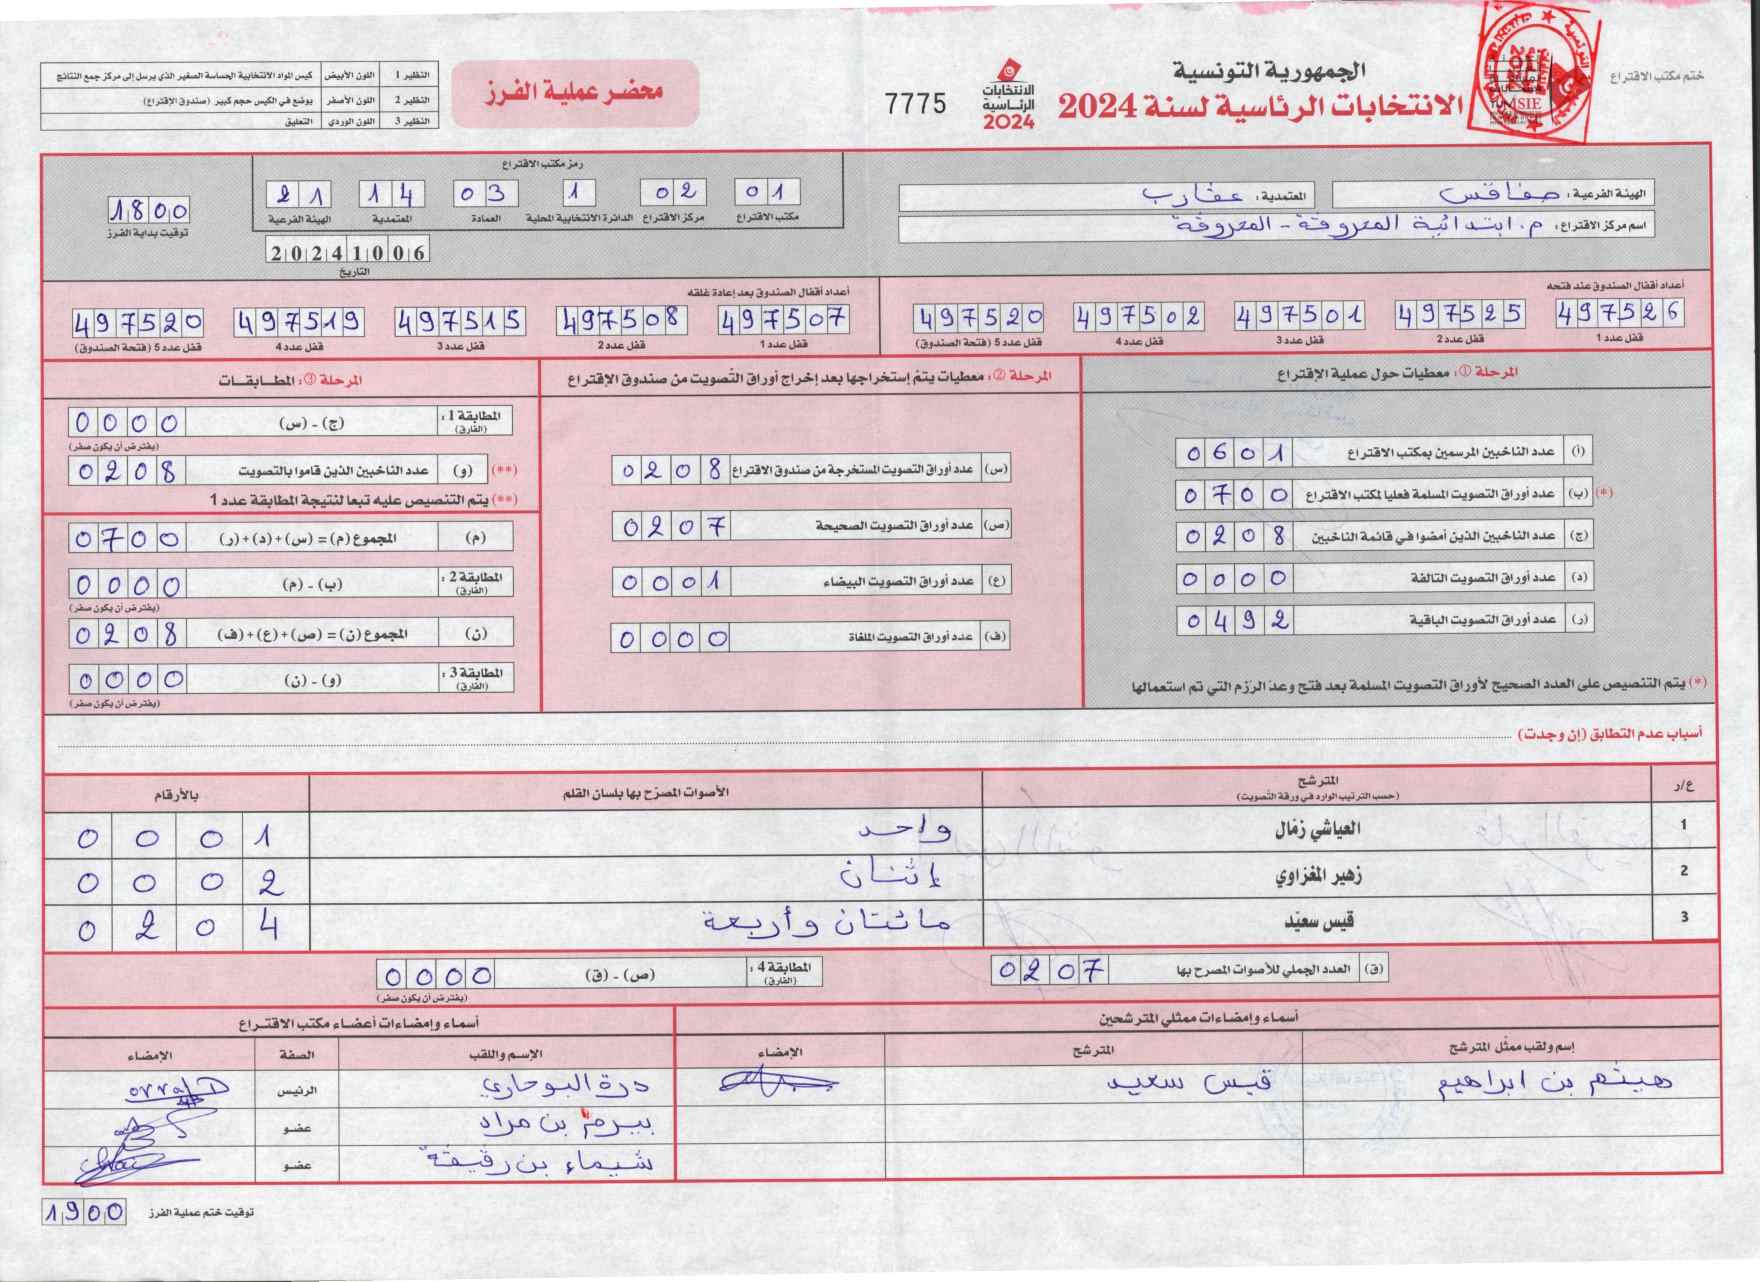 ختم مكتب الاقتراع
الجمهورية التونسية
الانتخابات الرئاسية لسنة 2024
الانتخابات
الرئاسية
2024
7775
محضر عملية الفرز
النظير 1 اللون الأبيض كيس المواد الانتخابية الحساسة الصغير الذي يرسل إلى مركز جمع النتائج
النظير 2 اللون الأصفر يوضع في الكيس حجم كبير (صندوق الإقتراع)
النظير 3 اللون الوردي التعليق
الهيئة الفرعية: صفاقس المعتمدية: عقارب
اسم مركز الاقتراع: م. ابتدائية المعروفة - المعروفة
رمز مكتب الاقتراع
01 02 1 03 14 21
مكتب الاقتراع مركز الاقتراع الدائرة الانتخابية المحلية العمادة المعتمدية الهيئة الفرعية
20241006
التاريخ
1800
توقيت بداية الفرز
أعداد أقفال الصندوق عند فتحه
497526 497525 497501 497502 497520
قفل عدد 1 قفل عدد 2 قفل عدد 3 قفل عدد 4 قفل عدد 5 (فتحة الصندوق)
أعداد أقفال الصندوق بعد إعادة غلقه
497507 497508 497515 497519 497520
قفل عدد 1 قفل عدد 2 قفل عدد 3 قفل عدد 4 قفل عدد 5 (فتحة الصندوق)
المرحلة ①: معطيات حول عملية الإقتراع
(أ) عدد الناخبين المرسمين بمكتب الاقتراع 0601
(*) (ب) عدد أوراق التصويت المسلمة فعليا لمكتب الاقتراع 0700
(ج) عدد الناخبين الذين أمضوا في قائمة الناخبين 0208
(د) عدد أوراق التصويت التالفة 0000
(ر) عدد أوراق التصويت الباقية 0492
(*) يتم التنصيص على العدد الصحيح لأوراق التصويت المسلمة بعد فتح وعد الرزم التي تم استعمالها
المرحلة ②: معطيات يتم إستخراجها بعد إخراج أوراق التصويت من صندوق الإقتراع
(س) عدد أوراق التصويت المستخرجة من صندوق الاقتراع 0208
(ص) عدد أوراق التصويت الصحيحة 0207
(ع) عدد أوراق التصويت البيضاء 0001
(ف) عدد أوراق التصويت الملغاة 0000
المرحلة ③: المطابقات
المطابقة 1: (الفارق) (ج) - (س) 0000
(يفترض أن يكون صفر)
(**) (و) عدد الناخبين الذين قاموا بالتصويت 0208
(**) يتم التنصيص عليه تبعا لنتيجة المطابقة عدد 1
(م) المجموع (م) = (س) + (د) + (ر) 0700
المطابقة 2: (الفارق) (ب) - (م) 0000
(يفترض أن يكون صفر)
(ن) المجموع (ن) = (ص) + (ع) + (ف) 0208
المطابقة 3: (الفارق) (و) - (ن) 0000
(يفترض أن يكون صفر)
أسباب عدم التطابق (إن وجدت)
ع/ر المترشح الأصوات المصرّح بها بلسان القلم بالأرقام
(حسب الترتيب الوارد في ورقة التصويت)
1 العياشي زمّال واحد 0001
2 زهير المغزاوي إثنان 0002
3 قيس سعيّد مائتان وأربعة 0204
(ق) العدد الجملي للأصوات المصرح بها 0207
المطابقة 4: (الفارق) (ص) - (ق) 0000
(يفترض أن يكون صفر)
أسماء وإمضاءات ممثلي المترشحين
إسم ولقب ممثّل المترشح المترشح الإمضاء
هيثم بن ابراهيم قيس سعيد
أسماء وإمضاءات أعضاء مكتب الاقتراع
الإسم واللقب الصفة الإمضاء
درة البوحاري الرئيس
بيرم بن مراد عضو
شيماء بن رقيقة عضو
توقيت ختم عملية الفرز 1900